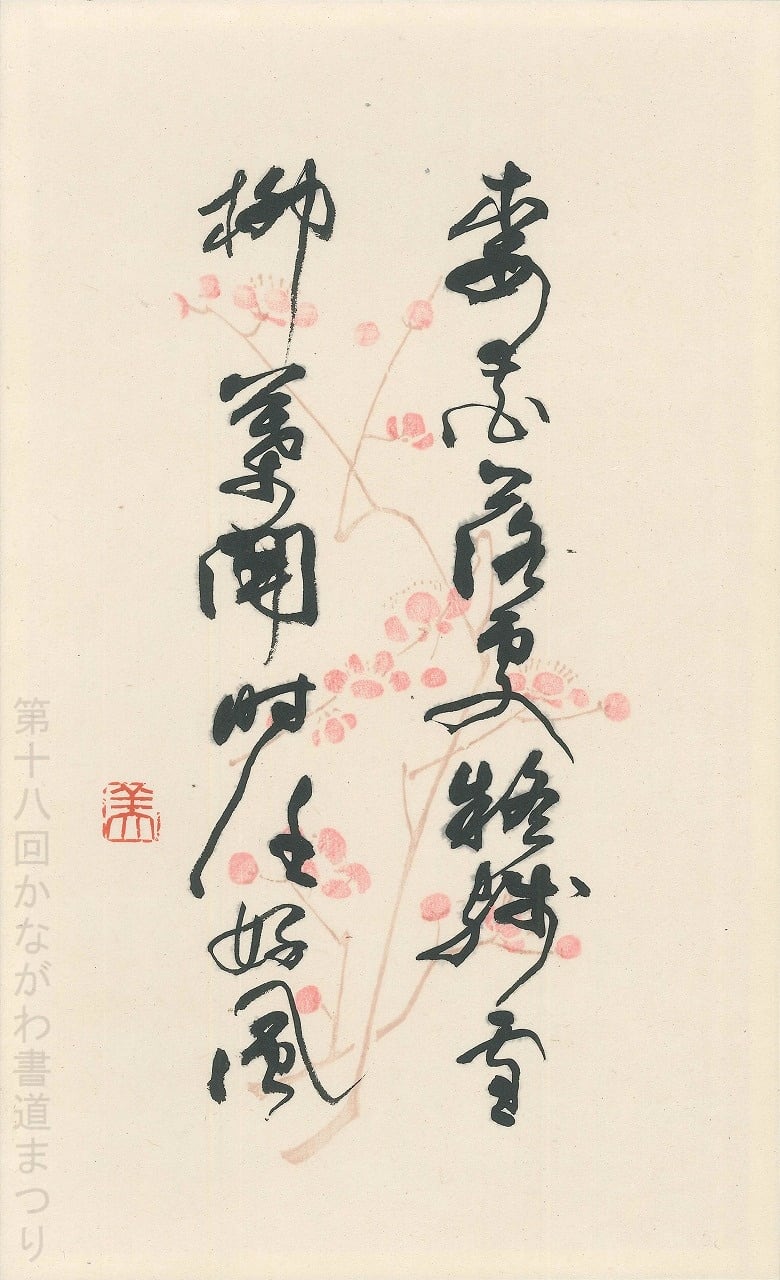 梅花落處疑殘雪
柳葉開時任好風
美
第十八回かながわ書道まつり